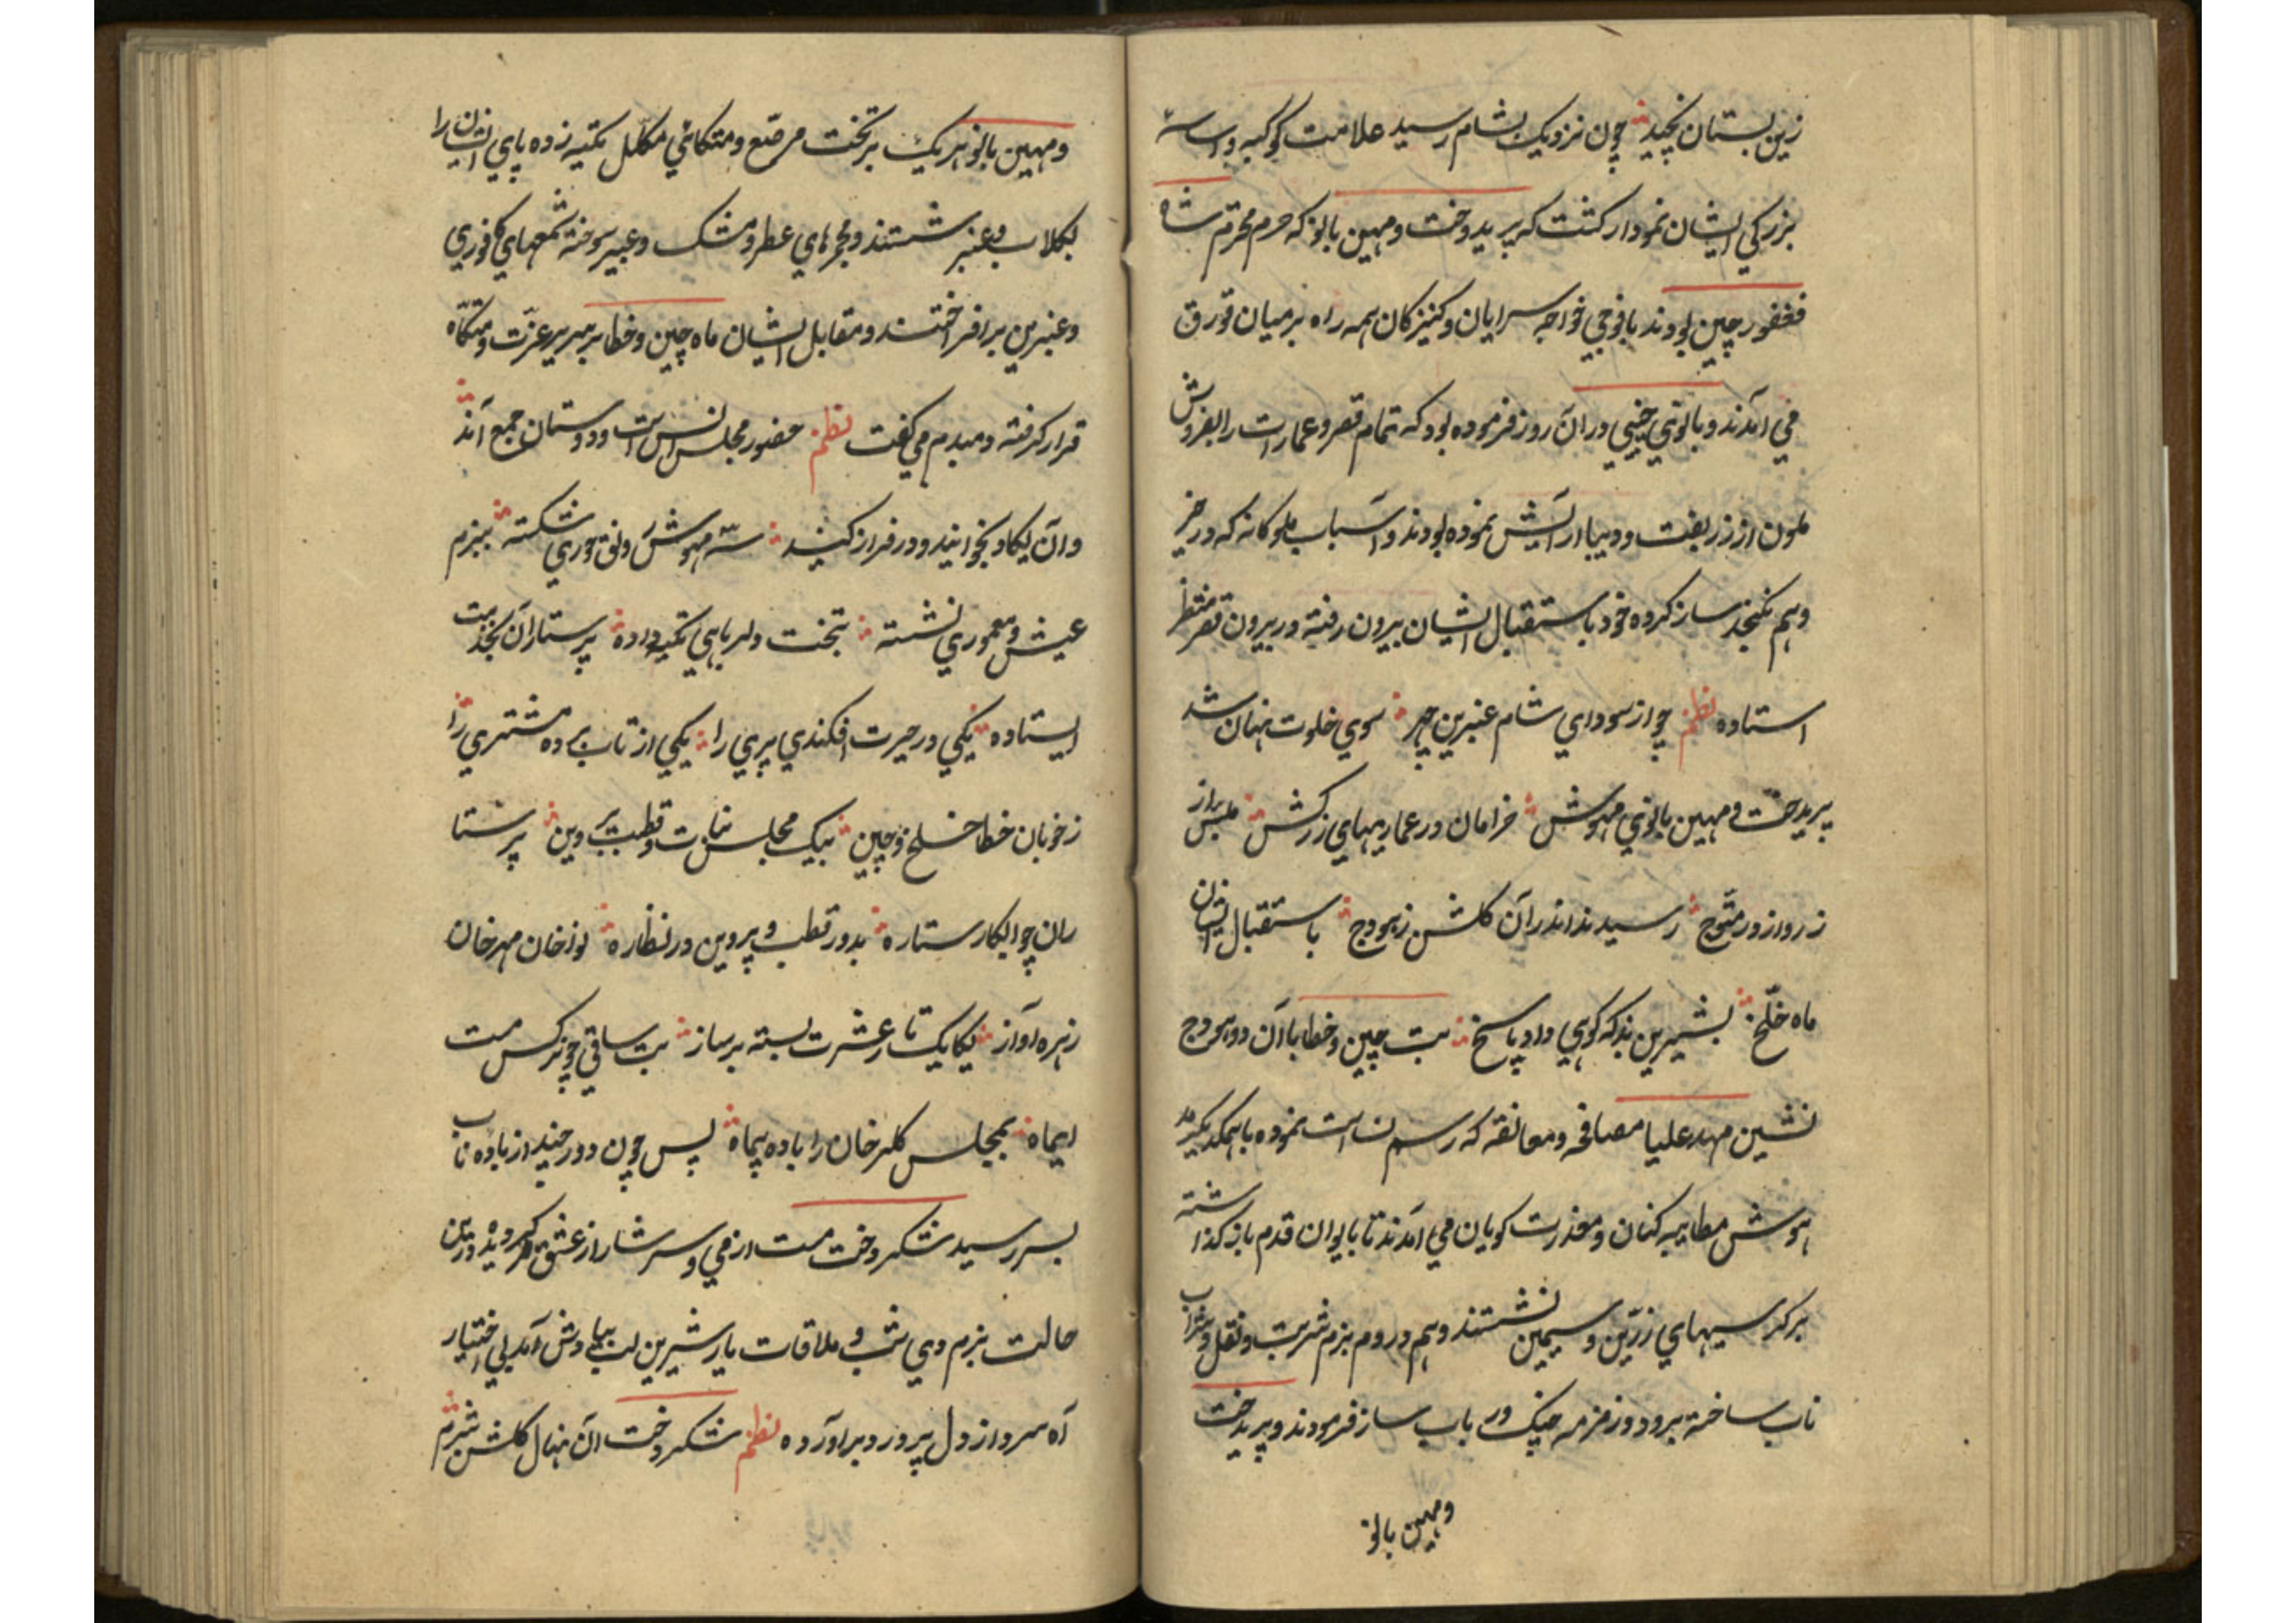 زین بستان نچید چون نزدیک بشام رسید علامت کوکبه و اراسته
بزرکي ایشان نمودار کشت که پریدخت و مهین بانو که حرم محرم شاه
فغفور چین بودند با فوجي خواجه سرایان و کنیزکان همه راه بر میان قورق
مي آمدند و بانوي خیي در ان روز فرموده بود که تمام قصر و عمارات را بفروش
ملون از زربفت و دیبا ارایش نموده بودند و اسباب ملوکانه که در خز
وهم نکنجد ساز کرده خود باستقبال ایشان بیرون رفته در بیرون قصر منتظر
استاده نظم چو از سوداي شام عنبرین چهر سوي خلوت نهان شد
پریدخت و مهین بانوي مهوش خرامان در عماریهاي زرکش ملبس از
زر و از در متوج رسیدند اندر آن کلشن ز هودج باستقبال ایشان
ماه خلخ بشیرین بذله کویي داد پاسخ بت چین و خطا با آن دو هودج
نشین مهد علیا مصافحه و معانقه که رسم نساست نموده با همکدیکر
هوش مطایبه کنان و معذرت کویان مي آمدند تا بایوان قدم باز کذاشته
بر کرسیهاي زرین و سیمین نشستند و هم در وم بزم شربت و نقل و شراب
ناب ساخته برود و زمزمه چنک و رباب ساز فرمودند و پریدخت
و مهین بانو
و مهین بانو هر یک بر تخت مرصع و متکائي مکلل تکیه زده پاي ایشان را
بکلاب و عنبر شستند و مجمرهاي عطر و مشک و عبیر سوخته شمعهاي کافوري
و عنبرین بر افراختند و مقابل ایشان ماه چین و خطا بر سریر عزت و متکاه
قرار کرفته و مبدم مي کفت نظم حضور مجلس انس است و دوستان جمع اند
و ان یکاد بخوانید و در فراز کنید سه مهوش رونق حوري شکسته ببزم
عیش و معموري نشسته بتخت دلربایي تکیه داده پرستاران بخدمت
ایستاده یکي در حیرت افکندي پري را یکي از تاب برده مشتري را
ز خوبان خطا خلخ و چین بیک مجلس بنات و قطب و پروین پرستا
ران چو ابکار ستاره بدور قطب و پروین در نظاره نواخان مهر خان
زهره آواز یکایک تار عشرت بسته بر ساز بت ساقي چو نرکس مست
ایماه بمجلس کلرخان را باده پیماه پس چون دور چند از باده ناب
بسر رسید شکر دخت مست از مي و سرشار از عشق کردیده درین
حالت بزم دي شب و ملاقات یار شیرین لب بیادش آمد بي اختیار
آه سرد از دل پر درد بر آورده نظم شکر دخت آن نهال کلشن شرم